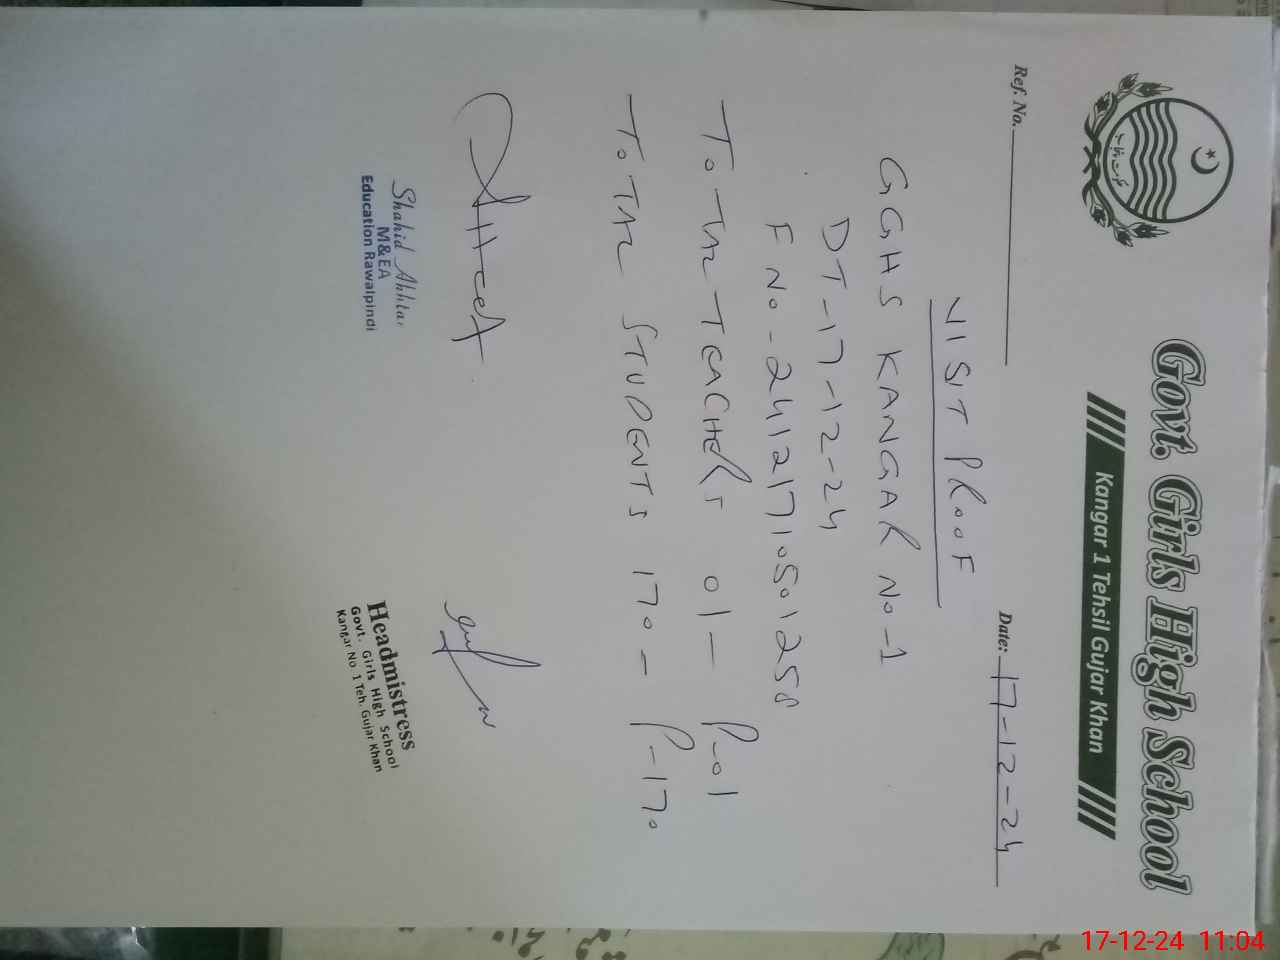 Govt. Girls High School
Kangar 1 Tehsil Gujar Khan
Ref. No.
Date: 17-12-24
VISIT PROOF
GGHS KANGAR No-1
DT-17-12-24
F No-24121710501258
ToTAL TEACHERS 01- P-01
ToTAL STUDENTS 170- P-170
Shahid Akhtar
M&EA
Education Rawalpindi
Headmistress
Govt. Girls High School
Kangar No 1 Teh. Gujar Khan
17-12-24 11:04